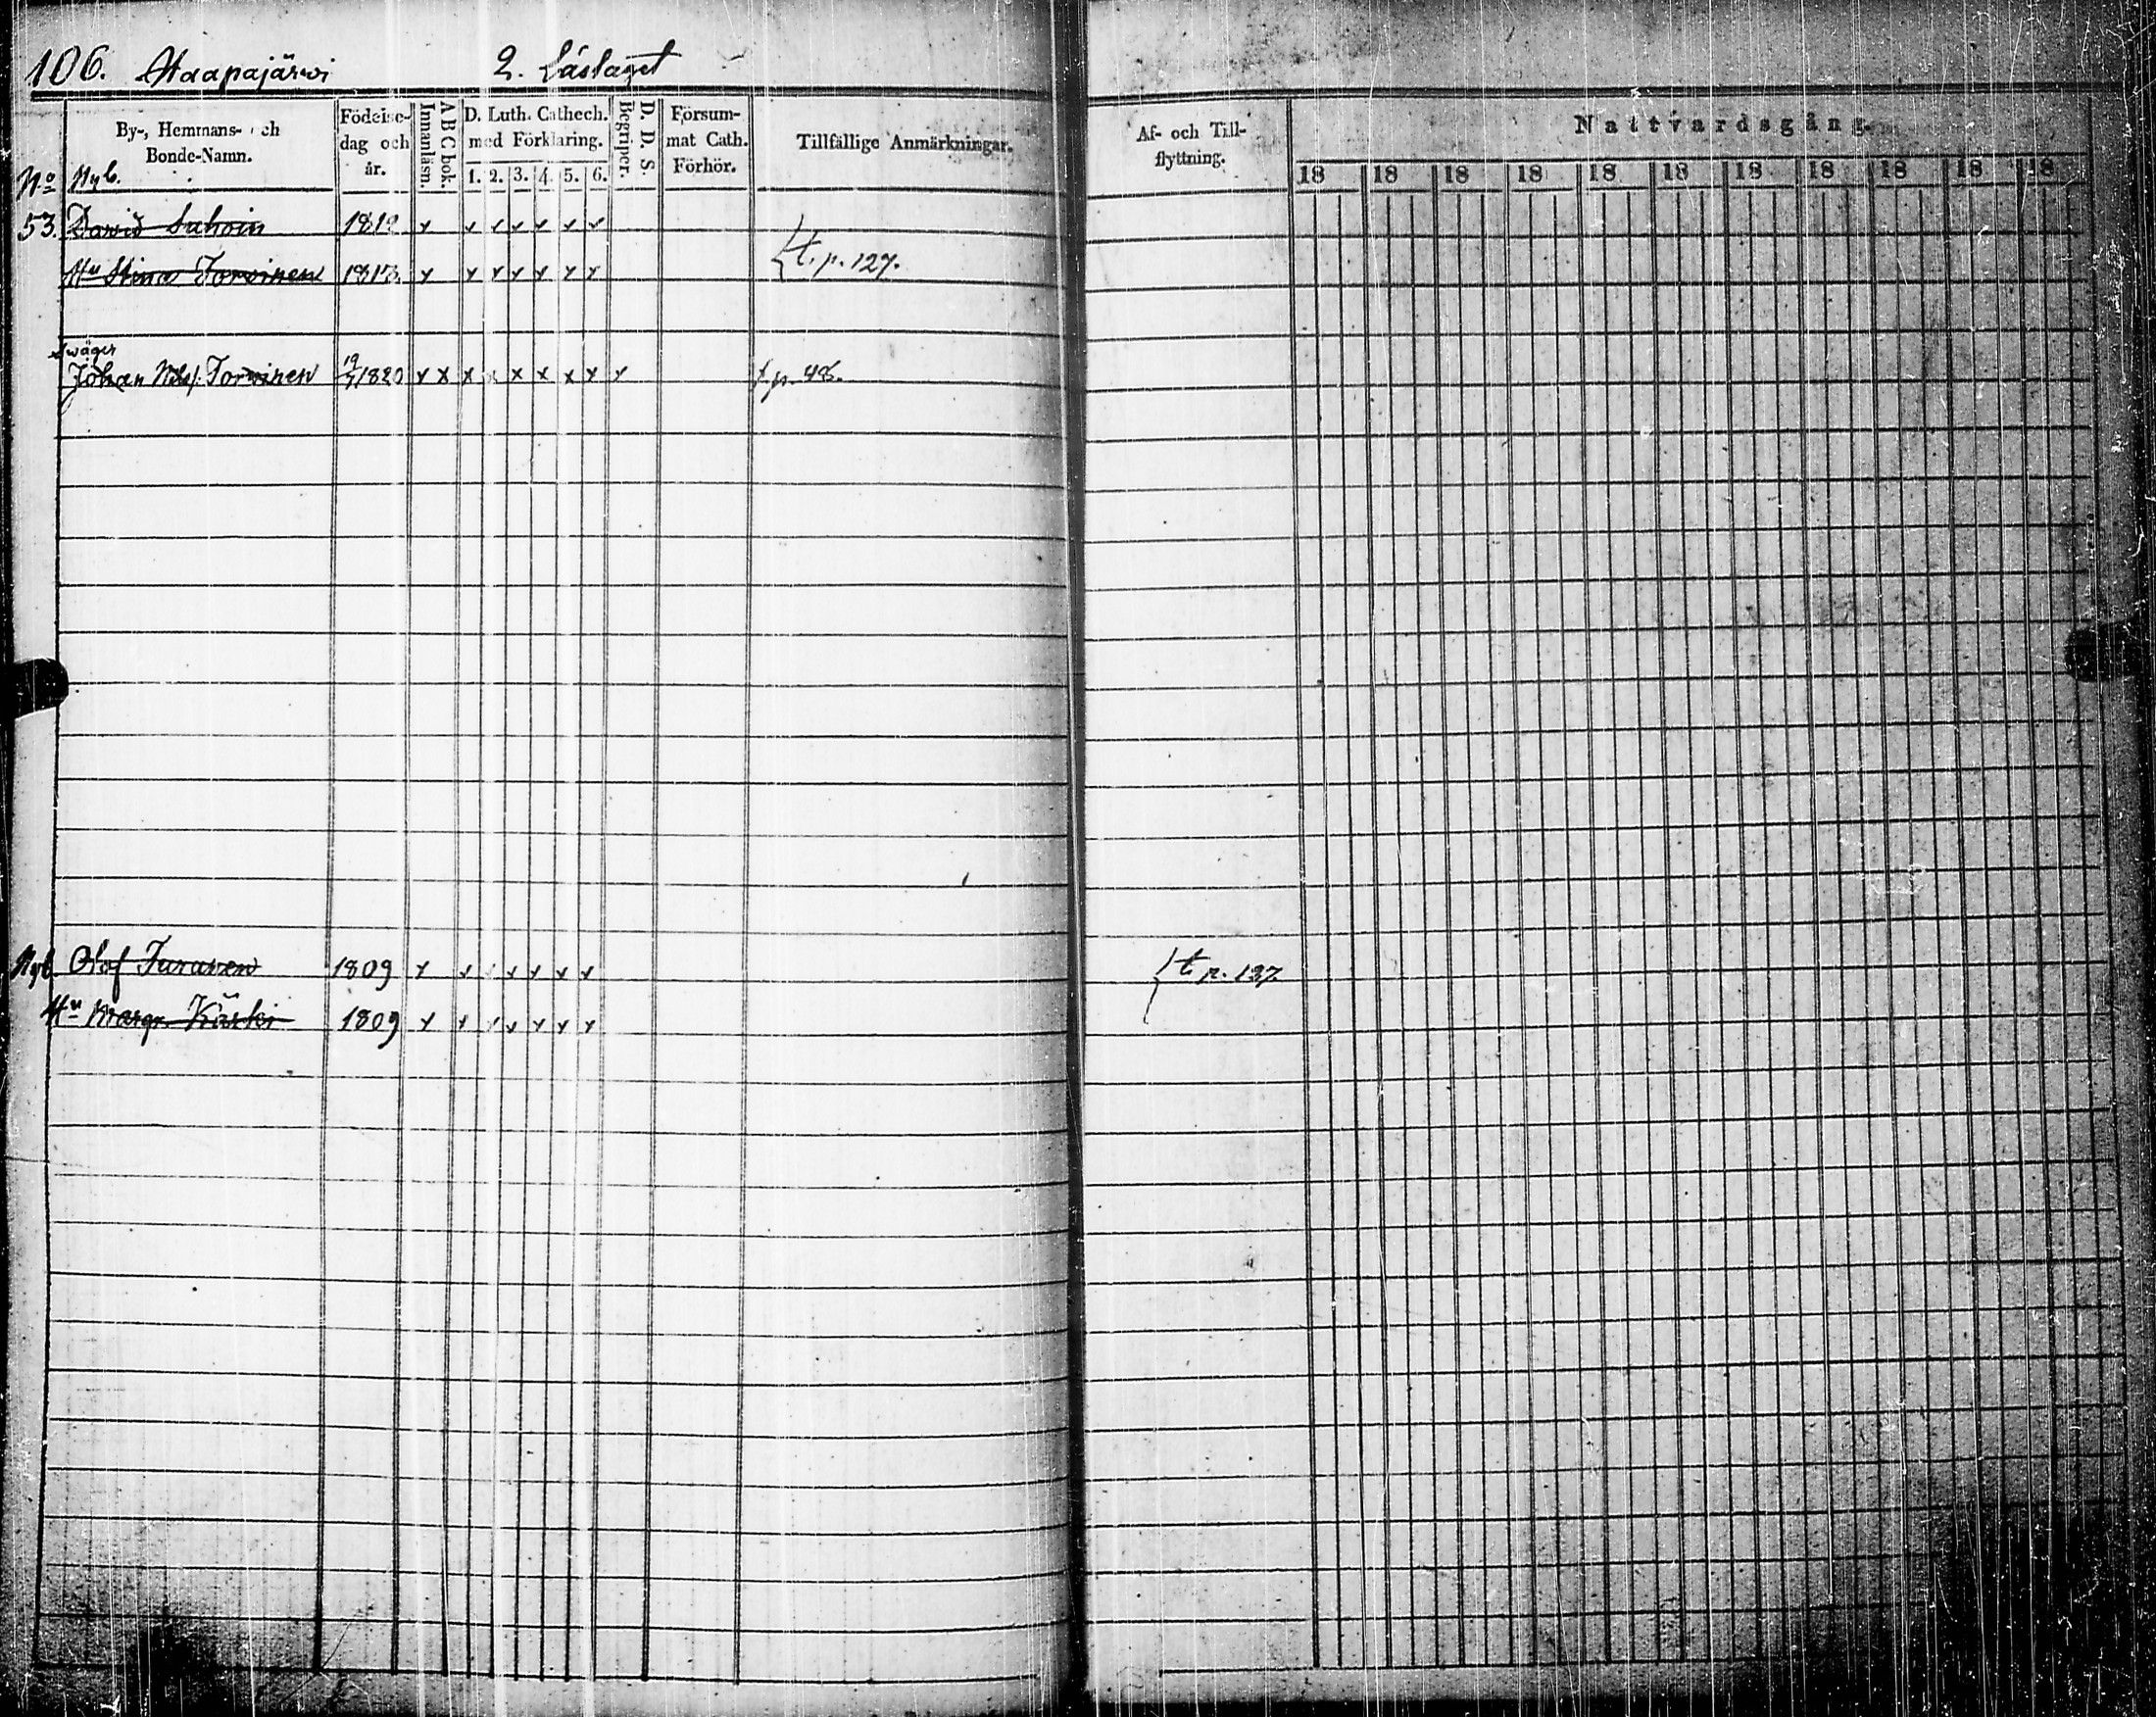 106. Haapajärwi 2. Läslaget
By-, Hemmans- och Bonde-Namn.
Födelse-dag och år.
Innanläsn.
A B C bok.
D. Luth. Cathech. med Förklaring.
1. 2. 3. 4. 5. 6.
Begriper.
D. D. S.
Försum-mat Cath. Förhör.
Tillfällige Anmärkningar.
Af- och Till-flyttning.
Nattvardsgång.
18 18 18 18 18 18 18 18 18 18 18
No Nyb.
53. David 181 x x x x x x x
t. p. 127.
Hu Stina Torvinen 1813 x x x x x x x
swåger
Johan Nilss. Torvinen 19/7 1820 x x x x x x x x x t. p. 48.
Nyb. Olof 1809 x x x x x x x t. p. 137.
Hu Margr. Kärki 1809 x x x x x x x